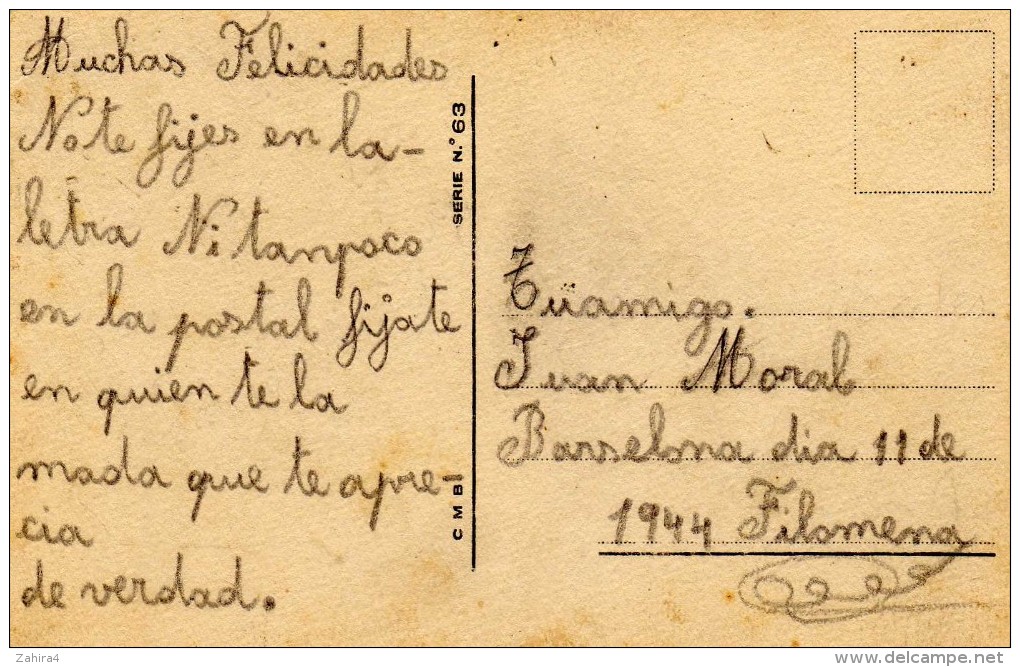 Muchas Felicidades
No te fijes en la-
letra Ni tanpoco
en la postal fijate
en quien te la
mada que te apre-
cia
de verdad.
SERIE N.º 63
C M B
Tüamigo.
Juan Moral
Barselona dia 11 de
1944 Filomena
Zahira4
www.delcampe.net